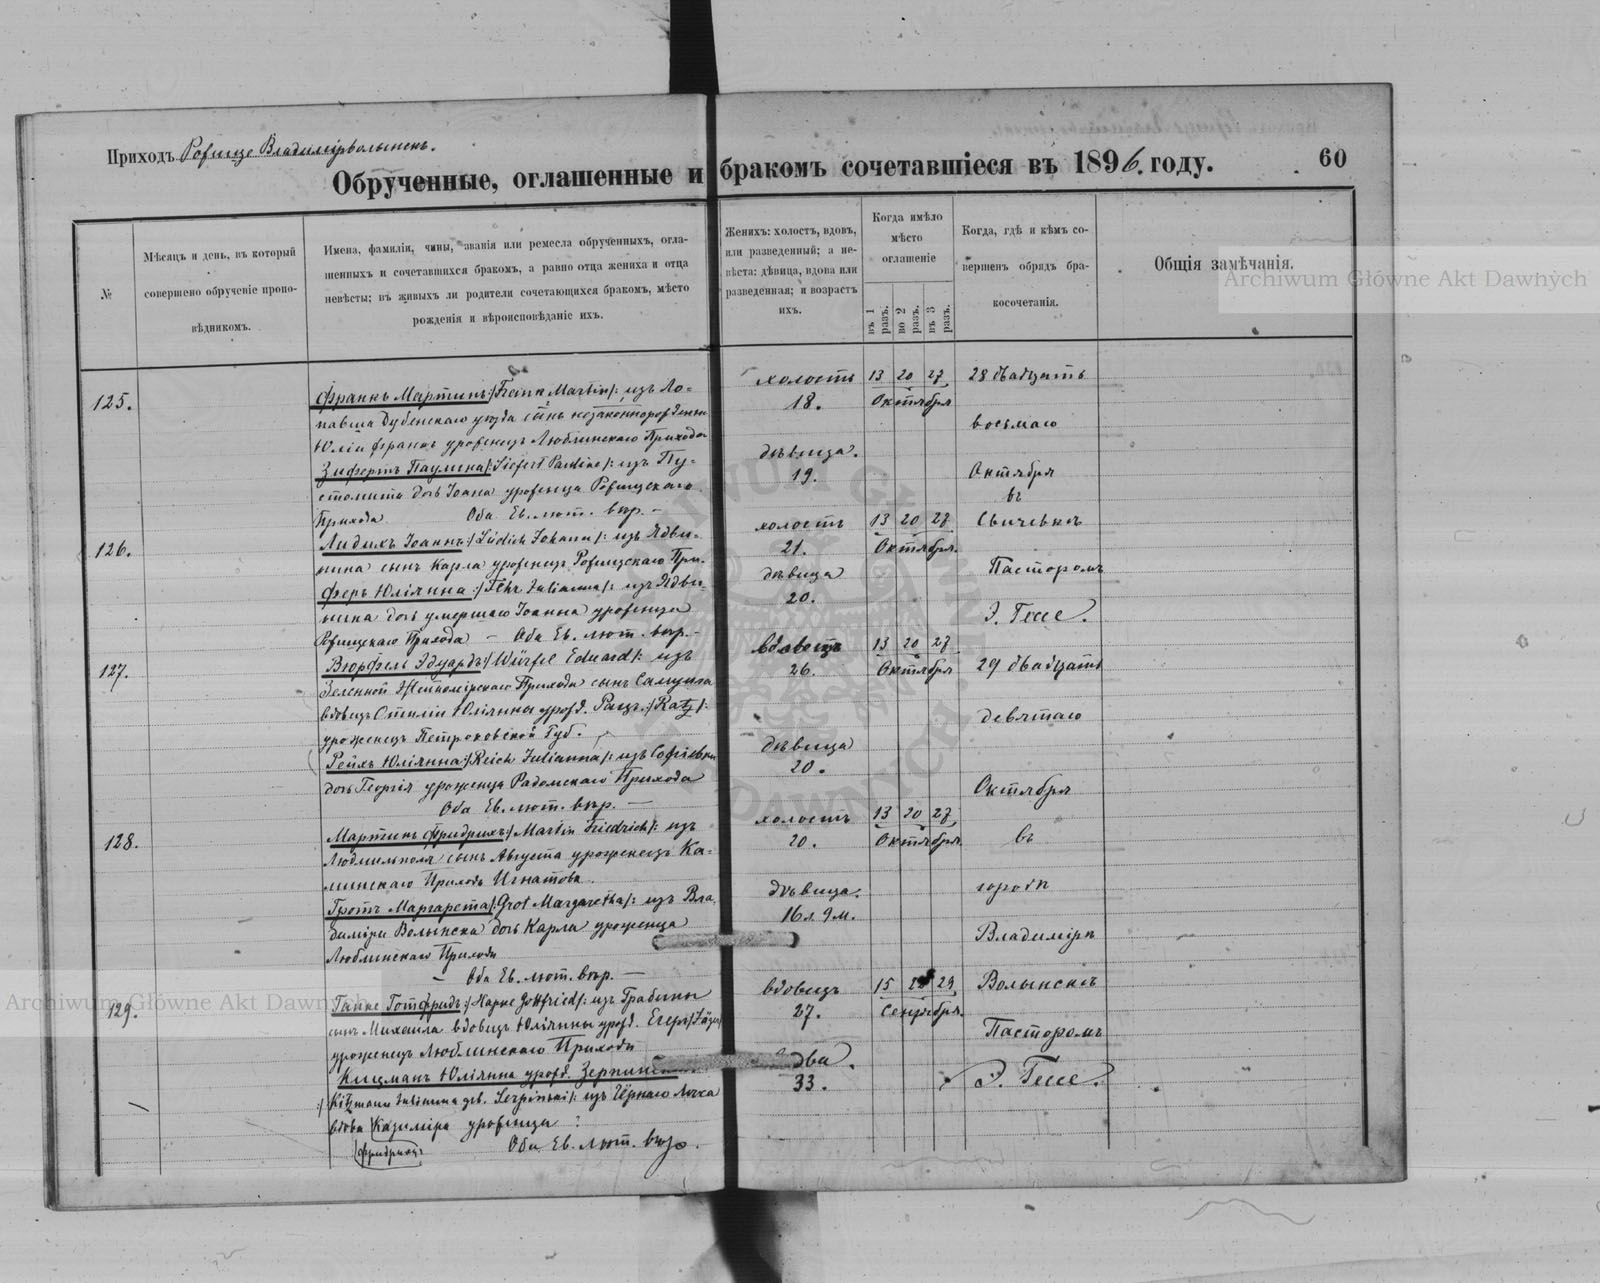 Приходъ Рожище Владимірволынск.
Обрученные, оглашенные и бракомъ сочетавшіеся въ 1896. году.
60
№
Мѣсяцъ и день, въ который
совершено обрученіе пропо-
вѣдникомъ.
Имена, фамиліи, чины, званія или ремесла обрученныхъ, огла-
шенныхъ и сочетавшихся бракомъ, а равно отца жениха и отца
невѣсты; въ живыхъ ли родители сочетающихся бракомъ, мѣсто
рожденія и вѣроисповѣданіе ихъ.
Женихъ: холостъ, вдовъ,
или разведенный; а не-
вѣста: дѣвица, вдова или
разведенная; и возрастъ
ихъ.
Когда имѣло
мѣсто
оглашеніе
въ 1 разъ.
во 2 разъ.
въ 3 разъ.
Когда, гдѣ и кѣмъ со-
вершенъ обрядъ бра-
косочетанія.
Общія замѣчанія.
Archiwum Główne Akt Dawnych
125.
Франкъ Мартинъ /:Frank Martin/: изъ Ло-
павша Дубенскаго уѣзда сынъ незаконнорожденн
Юліи Франкъ уроженецъ Люблинскаго Прихода
Зифертъ Паулина /:Siefert Pauline/: изъ Пу-
стомыта дочь Іоана уроженца Рожищскаго
Прихода Оба Ев. лют. вѣр. –
холостъ
18.
дѣвица.
19.
13 20 27
Октября
28 двадцать
восьмаго
Октября
въ
126.
Лидихъ Іоаннъ /:Lüdich Johann/: изъ Ядви-
нина сынъ Карла уроженецъ Рожищскаго При.
Феръ Юліянна /:Fehr Julianna/: изъ Ядви-
нина дочь умершаго Іоанна уроженца
Рожищскаго Прихода – Оба Ев. лют. вѣр. –
холостъ
21.
дѣвица
20.
13 20 27
Октября.
Пасторомъ
Э. Гессе.
127.
Вюрфель Эдуардъ /:Würfel Eduard/: изъ
Зеленной Житомірскаго Прихода сынъ Самуила
вдовецъ Отиліи Юліянны урожд. Рацъ /:Ratz/:
уроженецъ Петроковской Губ.
Рейхъ Юліянна /:Reich Julianna/: изъ Софіевки
дочь Георгія уроженца Радомскаго Прихода
Оба Ев. лют. вѣр. –
вдовецъ
26.
дѣвица
20.
13 20 27
Октября
29 двадцать
девятаго
Октября
въ
128.
Мартинъ Фридрихъ /:Martin Friedrich/: изъ
Людмильполя сынъ Августа уроженецъ Ка-
минскаго Прихода Игнатова.
Гротъ Маргарета /:Grot Margaretha/: изъ Вла.
диміра Волынска дочь Карла уроженца
Люблинскаго Прихода
– Оба Ев. лют. вѣр. –
холостъ
20.
дѣвица.
16 л. 9 м.
13 20 27
Октября.
городѣ
Владимірѣ
129.
Гапке Готфридъ /:Hapke Gottfried/: изъ Грабины
сынъ Михаила вдовецъ Юліянны урожд. Егеръ
уроженецъ Люблинскаго Прихода
Кицманъ Юліянна урожд.
/:Kitzmann Julianna geb. Serpinski/: изъ Чёрнаго Лозка
вдова Казиміра уроженца ?
Фридриха
Оба Ев. лют. вѣро.
вдовецъ
27.
33.
15 29
Сентября.
Волынскѣ
Пасторомъ
Э. Гессе.
Archiwum Główne Akt Dawnych